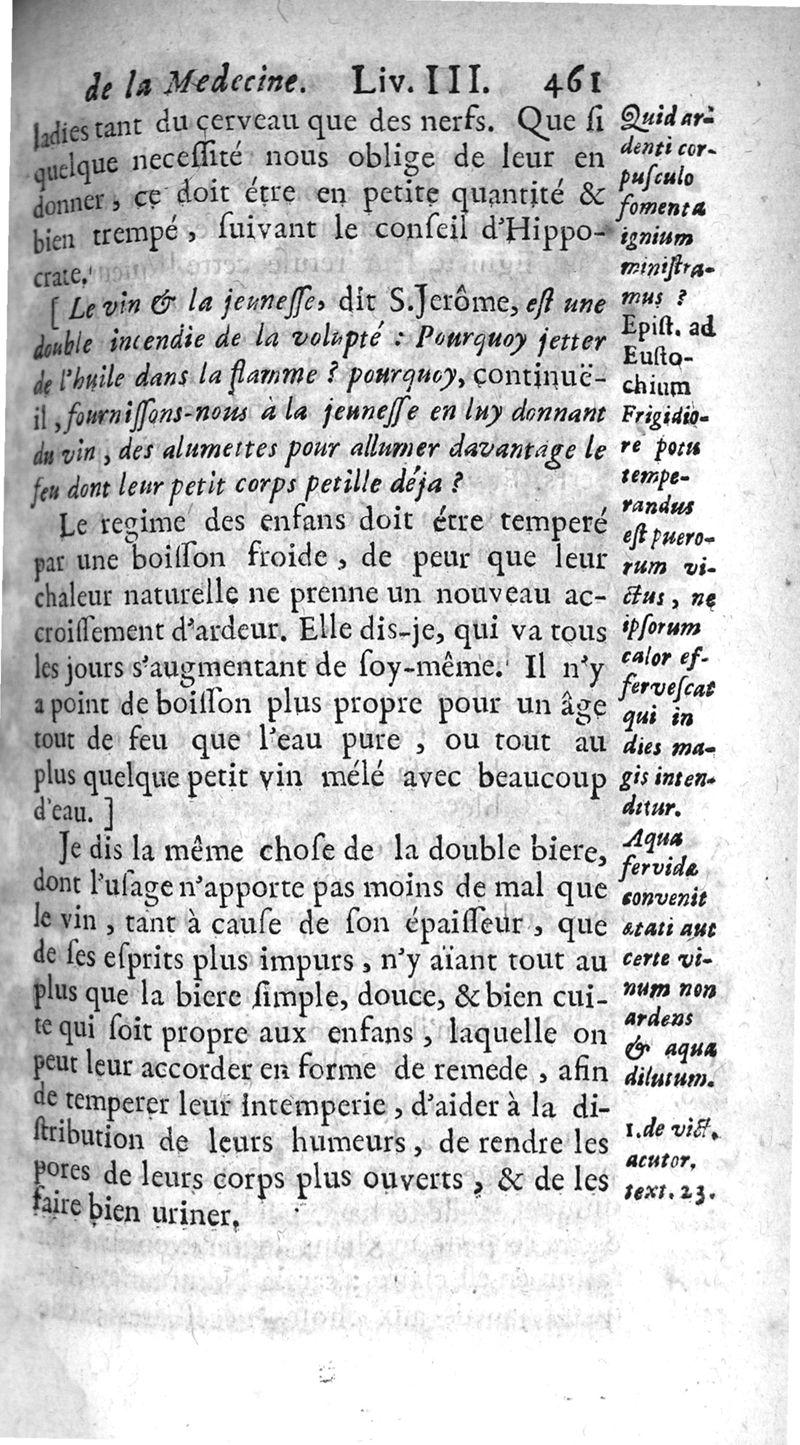 de la Medecine. Liv. III. 461
ladies tant du çerveau que des nerfs. Que ſi
quelque neceſſité nous oblige de leur en
donner, çe doit étre en petite quantité &
bien trempé, ſuivant le conſeil d'Hippo-
crate.
[ Le vin & la jeuneſſe, dit S. Jerôme, eſt une
double incendie de la volupté : Pourquoy jetter
de l'huile dans la flamme ? pourquoy, çontinuë-
il, fourniſſons-nous à la jeuneſſe en luy donnant
du vin, des alumettes pour allumer davantage le
feu dont leur petit corps petille déja ?
Le regime des enfans doit étre temperé
par une boiſſon froide, de peur que leur
chaleur naturelle ne prenne un nouveau ac-
croiſſement d'ardeur. Elle dis-je, qui va tous
les jours s'augmentant de ſoy-même. Il n'y
a point de boiſſon plus propre pour un âge
tout de feu que l'eau pure, ou tout au
plus quelque petit vin mélé avec beaucoup
d'eau. ]
Je dis la même choſe de la double biere,
dont l'uſage n'apporte pas moins de mal que
le vin, tant à cauſe de ſon épaiſſeur, que
de ſes eſprits plus impurs, n'y aïant tout au
plus que la biere ſimple, douce, & bien cui-
te qui ſoit propre aux enfans, laquelle on
peut leur accorder en forme de remede, afin
de temperer leur intemperie, d'aider à la di-
ſtribution de leurs humeurs, de rendre les
pores de leurs corps plus ouverts, & de les
faire bien uriner.
Quid ar-
denti cor-
puſculo
fomenta
ignium
miniſtra-
mus ?
Epiſt. ad
Euſto-
chium
Frigidio-
re potu
tempe-
randus
eſt puero-
rum vi-
ctus, ne
ipſorum
calor ef-
ferveſcat
qui in
dies ma-
gis inten-
ditur.
Aqua
fervidæ
convenit
ætati aut
certe vi-
num non
ardens
& aqua
dilutum.
1. de vict.
acutor.
text. 23.